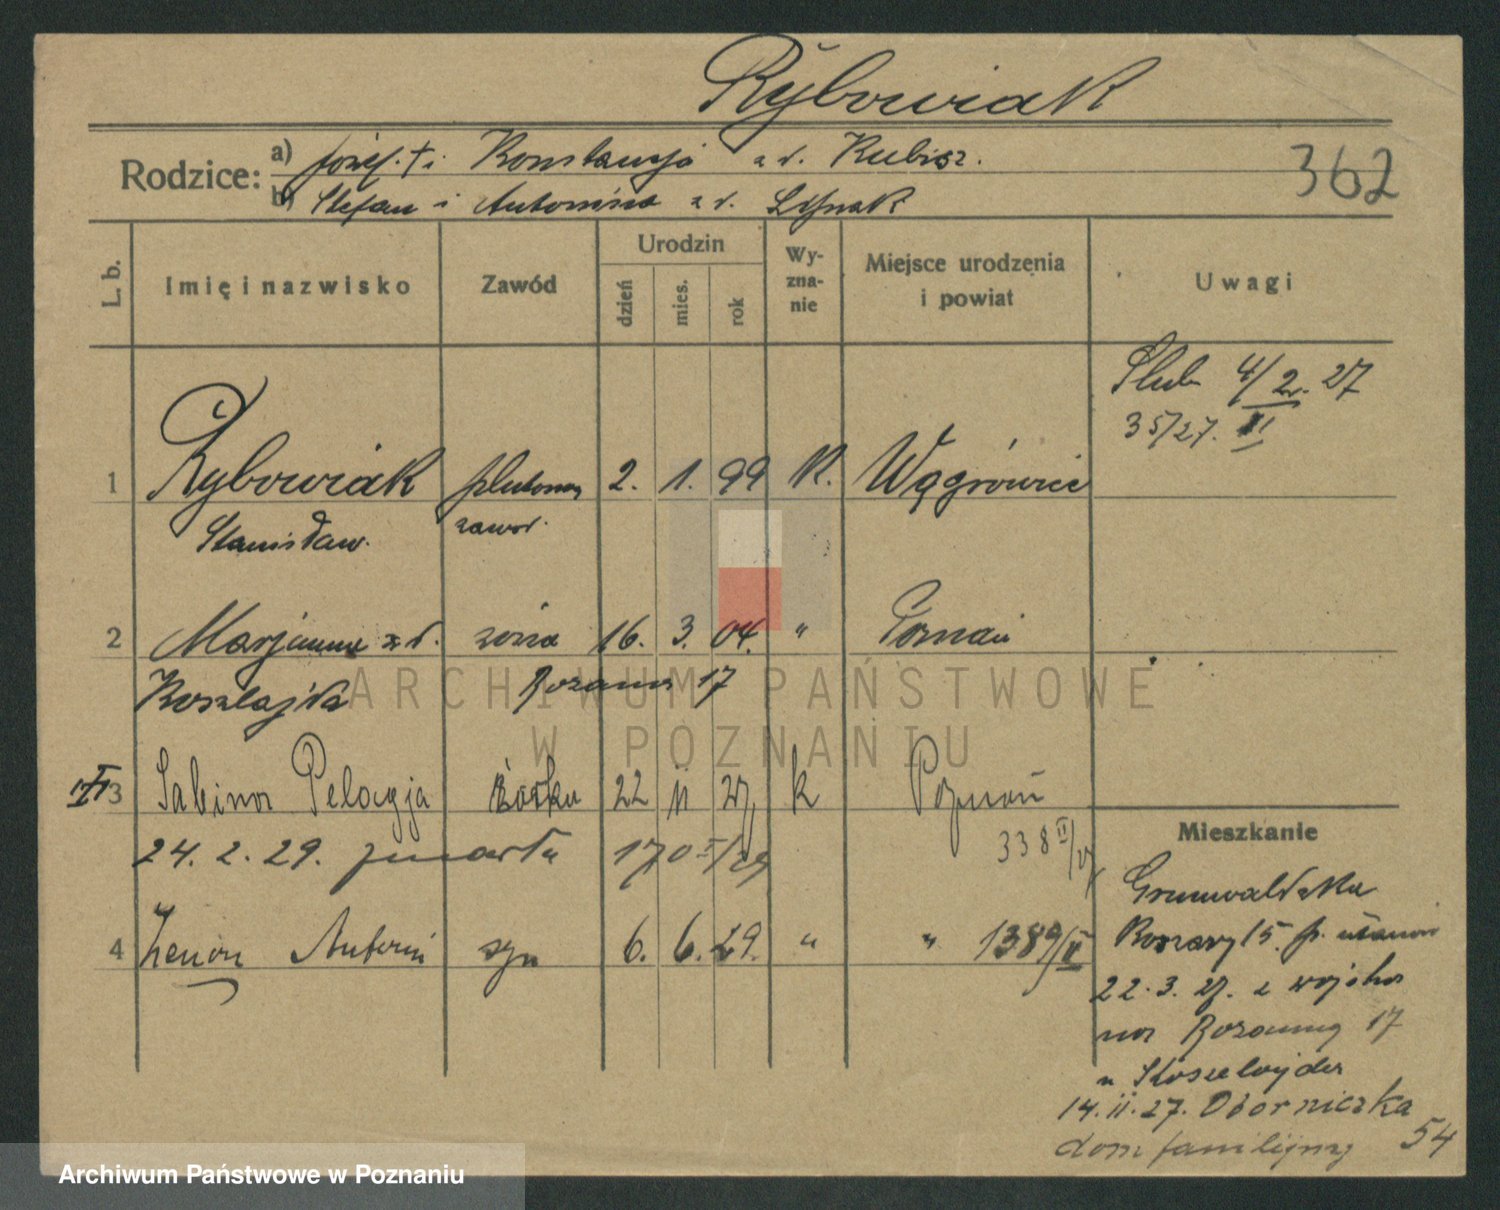 Rybowiak
Rodzice: a) Józef † i Konstancja z d. Kubisz.
362
b) Stefan i Antonina z d.
L. b. Imię i nazwisko Zawód Urodzin dzień mies. rok Wy-zna-nie Miejsce urodzenia i powiat Uwagi
Ślub 4/2. 27
35/27. II
1 Rybowiak plutonow 2. 1. 99 K. Wągrówiec
Stanisław. zawod.
2 Marjanna z d. żona 16. 3. 04. " Poznań
Różana 17
ARCHIWUM PAŃSTWOWE
W POZNANIU
3 Sabina Pelagja córka 22 II 27 k Poznań
338 II/27
24. 2. 29. zmarła 170 I/29
Mieszkanie
Grunwaldzka
4 Zenon Antoni syn 6. 6. 29. " " 1389/II
Koszary 15. p. ułanów
22. 3. 27. z wojska
na Różaną 17
u
14. II. 27. Obornicka
dom familijny 54
Archiwum Państwowe w Poznaniu